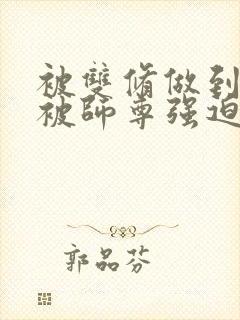 被雙脩做到
被師尊强迫
郭品芬